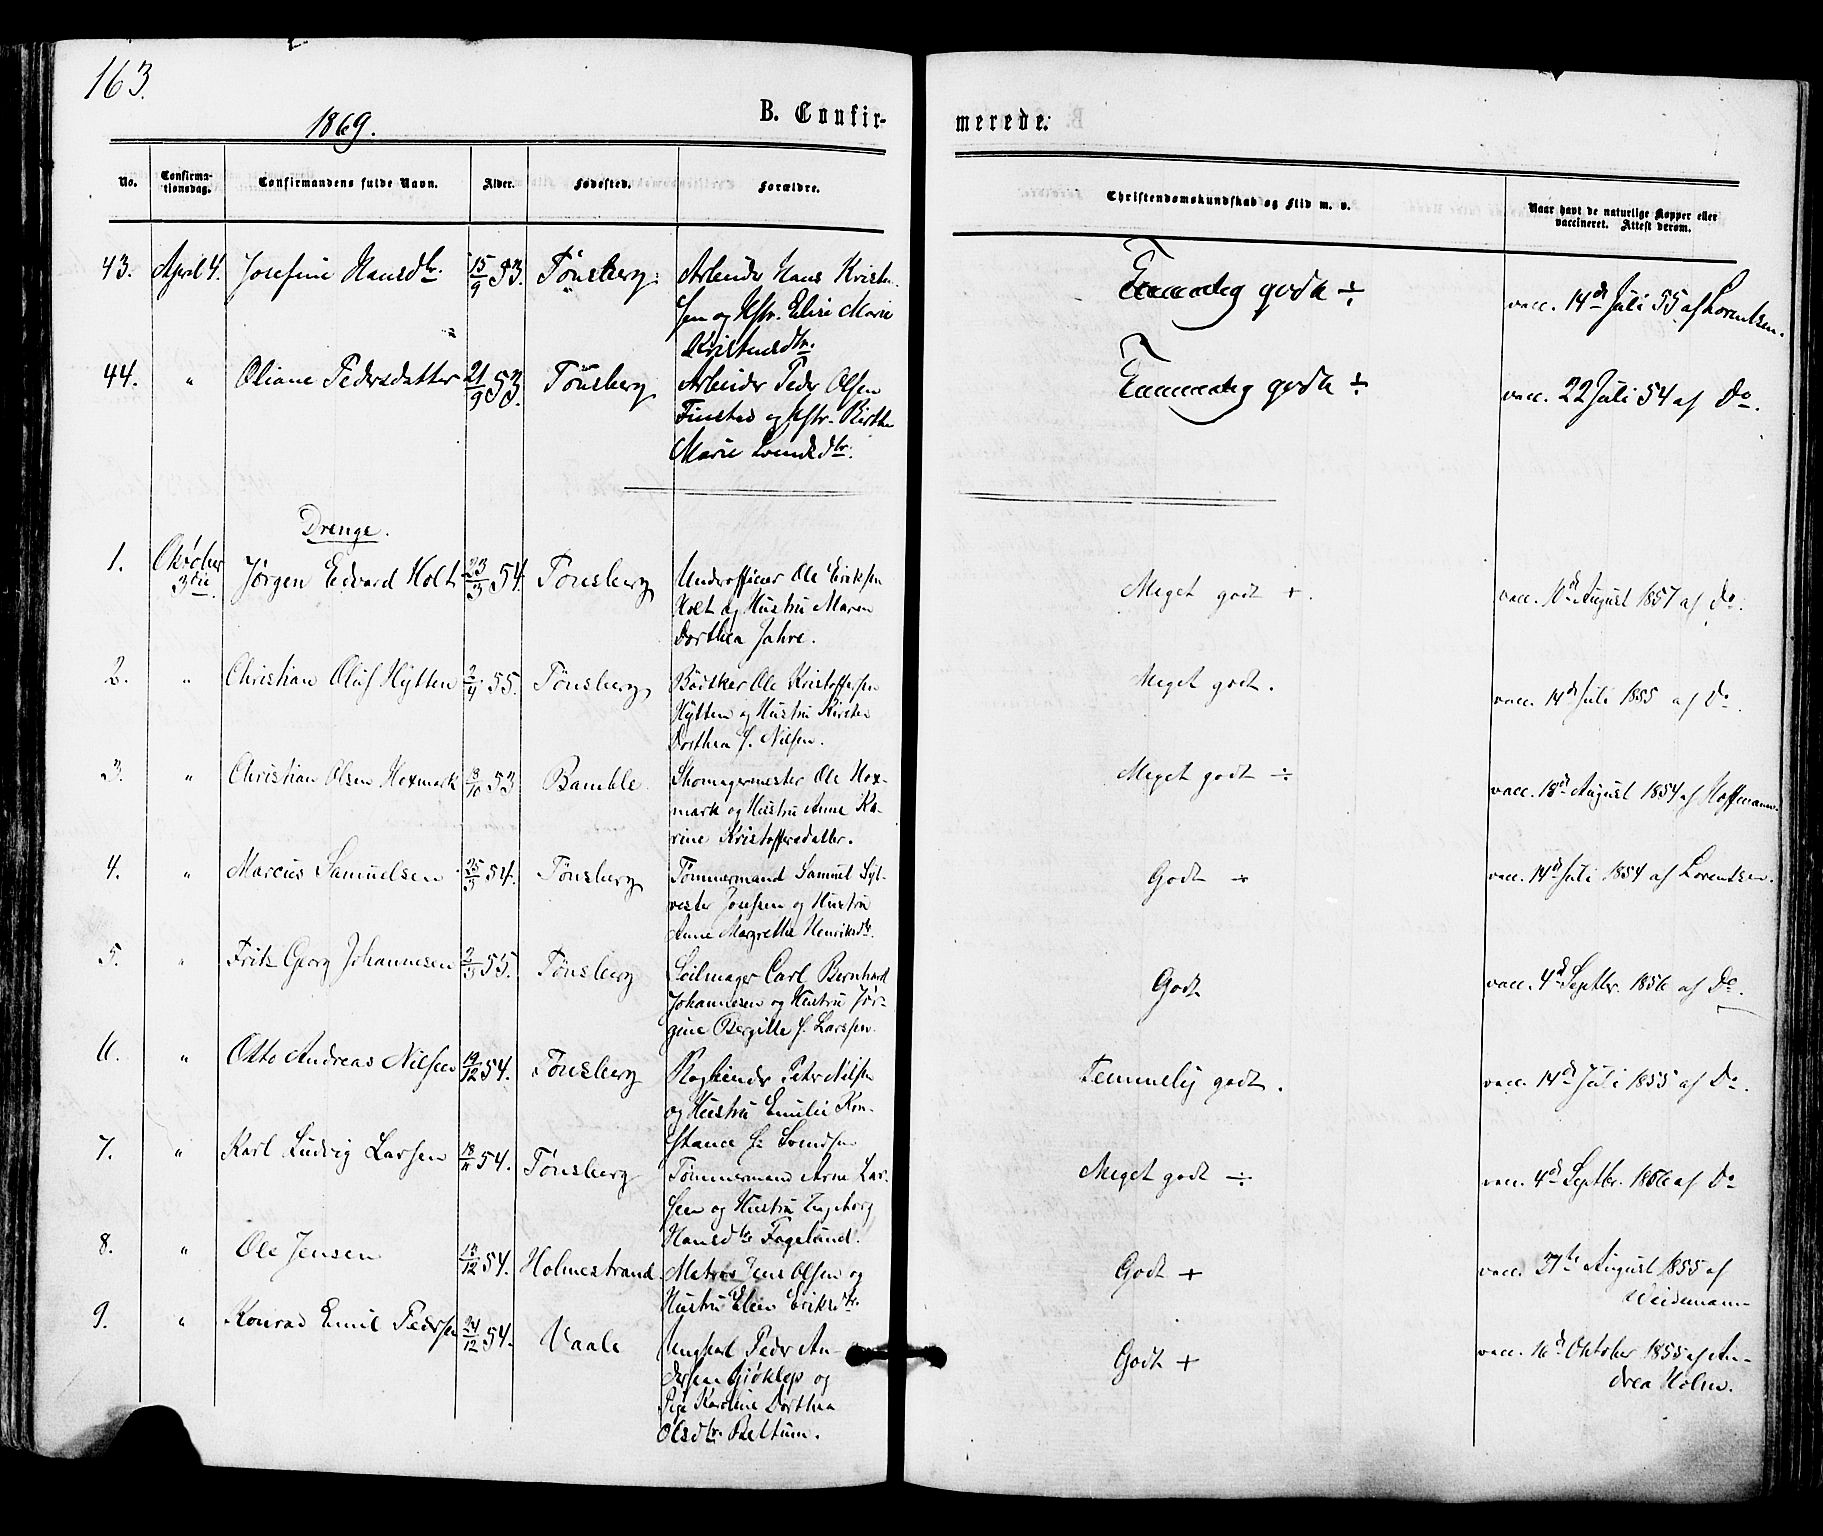 163.
1869.
B. Confir-
merede.
No.
Confirma-
tionsdag.
Confirmandens fulde Navn.
Alder.
Fødested.
Forældre.
Christendomskundskab og Flid m. v.
Naar havt de naturlige Kopper eller
vaccineret. Attest derom.
43. April 4. Josefine Hansdtr. 15/9 53. Tönsberg. Arbeider Hans Kristen-
sen og Hstr. Elise Marie
Kristensdtr.
Temmelig godt ÷
vacc. 14de Juli 55 af Lorentsen.
44. " Oliane Pedersdatter 21/9 53. Tönsberg Arbeider Peder Olsen
Finstad og Hstr. Birthe
Marie Svendsdtr.
Temmelig godt ÷
vacc. 22 Juli 54 af Do.
Drenge.
1. Oktober
3die
Jørgen Edvard Holt 23/3 54 Tønsberg Underofficer Ole Eriksen
Holt og Hustru Maren
Dorthea Jahre.
Meget godt +.
vacc. 10de August 1857 af Do.
2. " Christian Oluf Hytten 2/4 55. Tønsberg Bødker Ole Kristoffersen
Hytten og Hustru Kirsten
Dorthea f. Nilsen.
Meget godt.
vacc. 14de Juli 1855 af Do.
3. " Christian Olsen Hoxmark 8/10 53 Bamble Skomagermester Ole Hox-
mark og Hustru Anne Ka-
rine Kristoffersdatter.
Meget godt ÷
vacc. 18de August 1854 af Hoffmann.
4. " Marcus Samuelsen 25/5 54. Tønsberg Tømmermand Samuel Syl-
vester Josefsen og Hustru
Anne Margrethe Henriksdtr.
Godt ÷
vacc. 14de Juli 1854 af Lorentsen.
5. " Fritz Georg Johannesen 2/5 55. Tønsberg Seilmager Carl Bernhard
Johannesen og Hustru Jør-
gine Bergitte f. Larssen.
Godt
vacc. 4de Septbr. 1856 af Do.
6. " Otto Andreas Nilsen 19/12 54. Tønsberg Peter Nilsen
og Hustru Emilie Kon-
stance f. Svendsen
Temmelig godt.
vacc. 14de Juli 1855 af Do.
7. " Karl Ludvig Larsen 18/11 54. Tønsberg Tømmermand Arne Lar-
sen og Hustru Ingeborg
Hansdtr Fogelund.
Meget godt ÷
vacc. 4de Septbr. 1856 af Do
8. " Ole Jensen 18/12 54. Holmestrand. Matros Jens Olsen og
Hustru Elen Eriksdtr.
Godt +
vacc. 27de August 1855 af
Weidemann
9. " Konrad Emil Pedersen 24/12 54. Vaale Ungkarl Peder An-
dersen Gjøklep og
Pige Karoline Dorthea
Olsdtr. Beltum.
Godt +
vacc. 16de Oktober 1855 af An-
drea Holm.